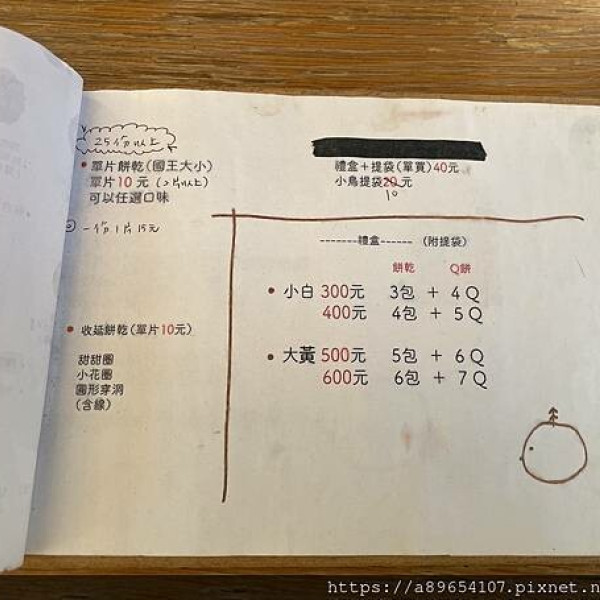 25份以上
• 單片餅乾(國王大小)
單片10元(2片以上)
可以任選口味
一份1片15元
• 收延餅乾(單片10元)
甜甜圈
小花圈
圓形穿洞
(含線)
禮盒+提袋(單買)40元
小鳥提袋20元
10
-------禮盒------ (附提袋)
餅乾 Q餅
• 小白 300元 3包 + 4Q
400元 4包 + 5Q
• 大黃 500元 5包 + 6Q
600元 6包 + 7Q
https://a89654107.pixnet.n